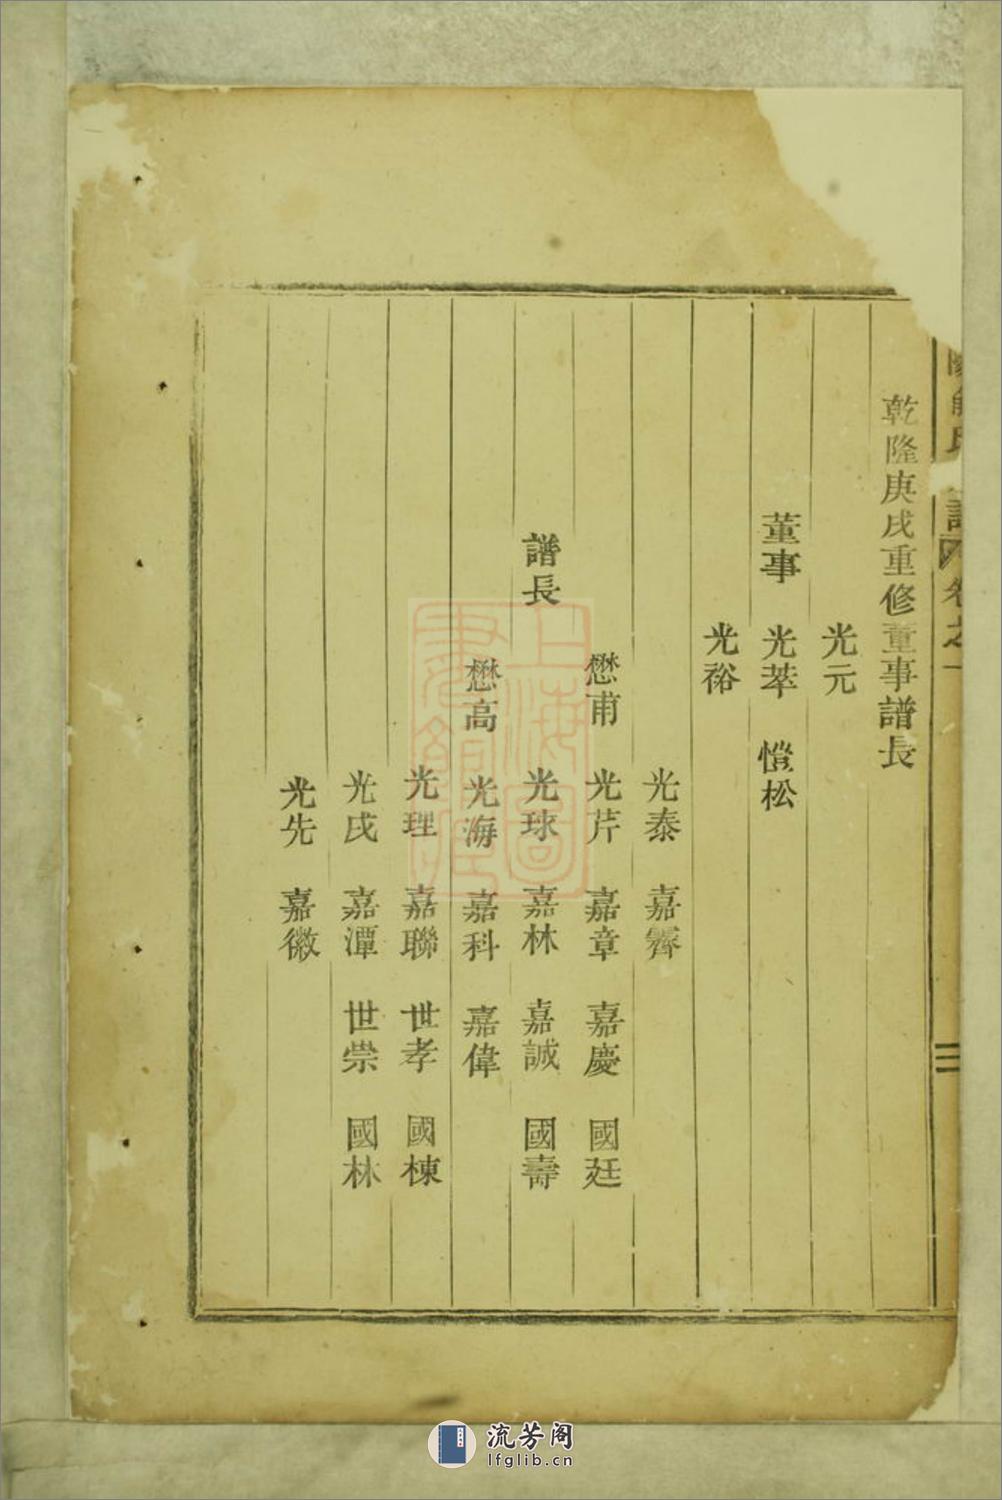 乾隆庚戌重修董事譜長
光元
董事 光萃 愷松
光裕
光泰 嘉霽
懋甫 光芹 嘉章 嘉慶 國廷
譜長 光球 嘉林 嘉誠 國壽
懋高 光海 嘉科 嘉偉
光理 嘉聯 世孝 國棟
光戌 嘉潭 世崇 國林
光先 嘉徽
氏 卷之一
三
上海圖書館藏
流芳阁
lfglib.cn